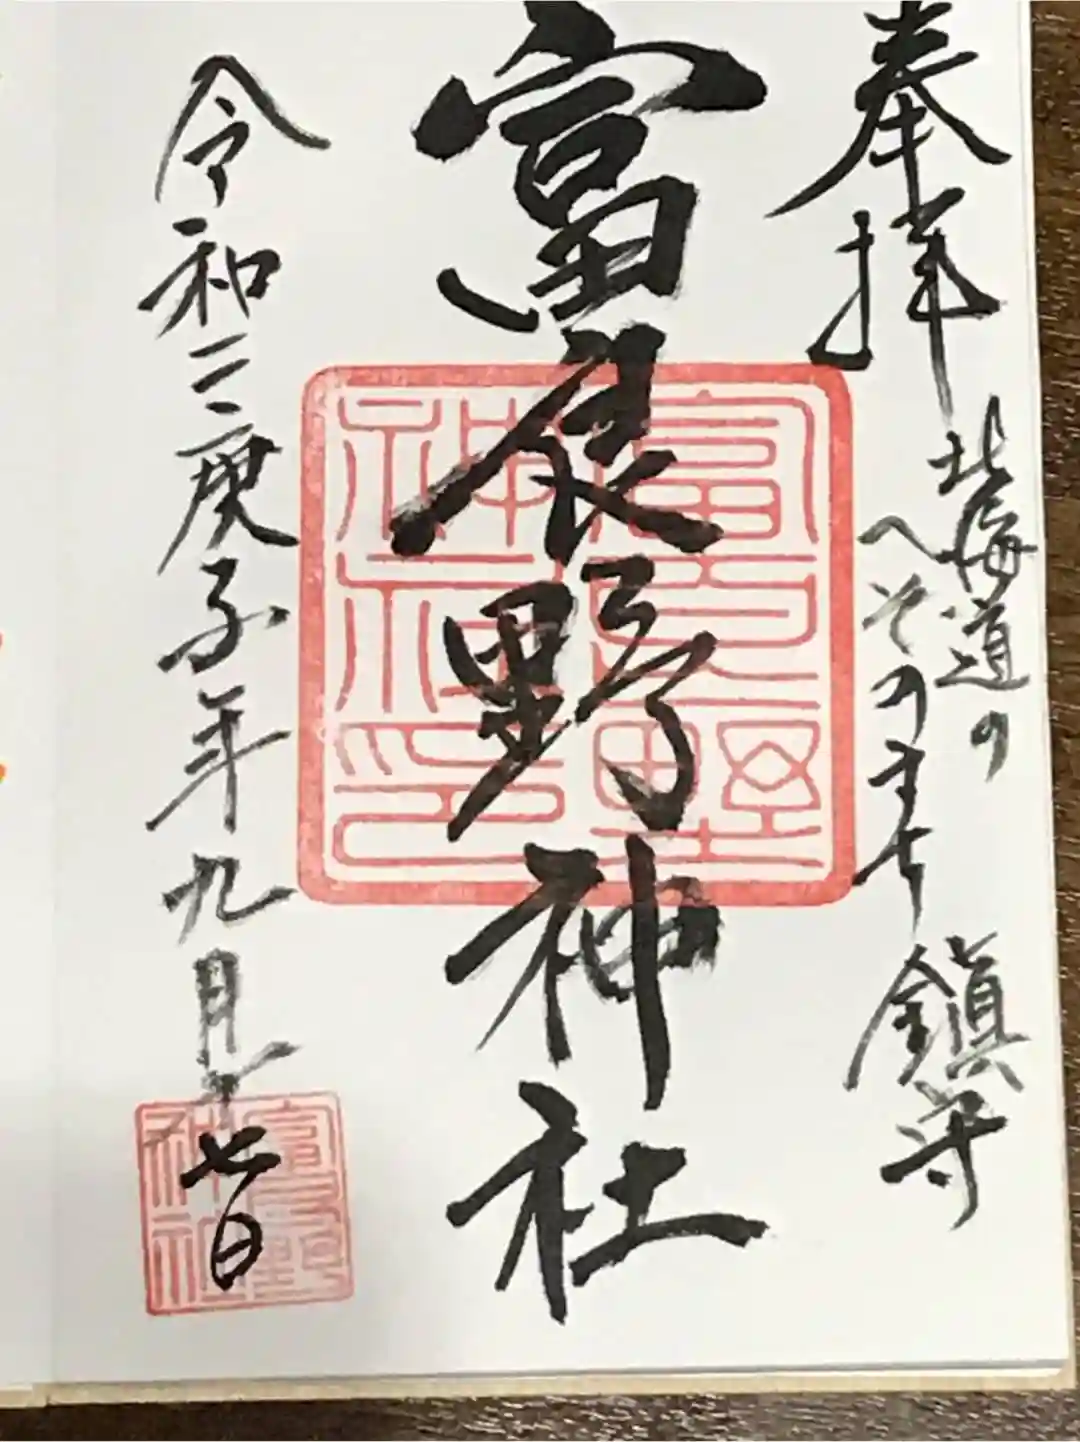 奉拝
北海道の
へそのまち
鎮守
富良野神社
富良野神社印
令和二庚子年九月十七日
富良野神社